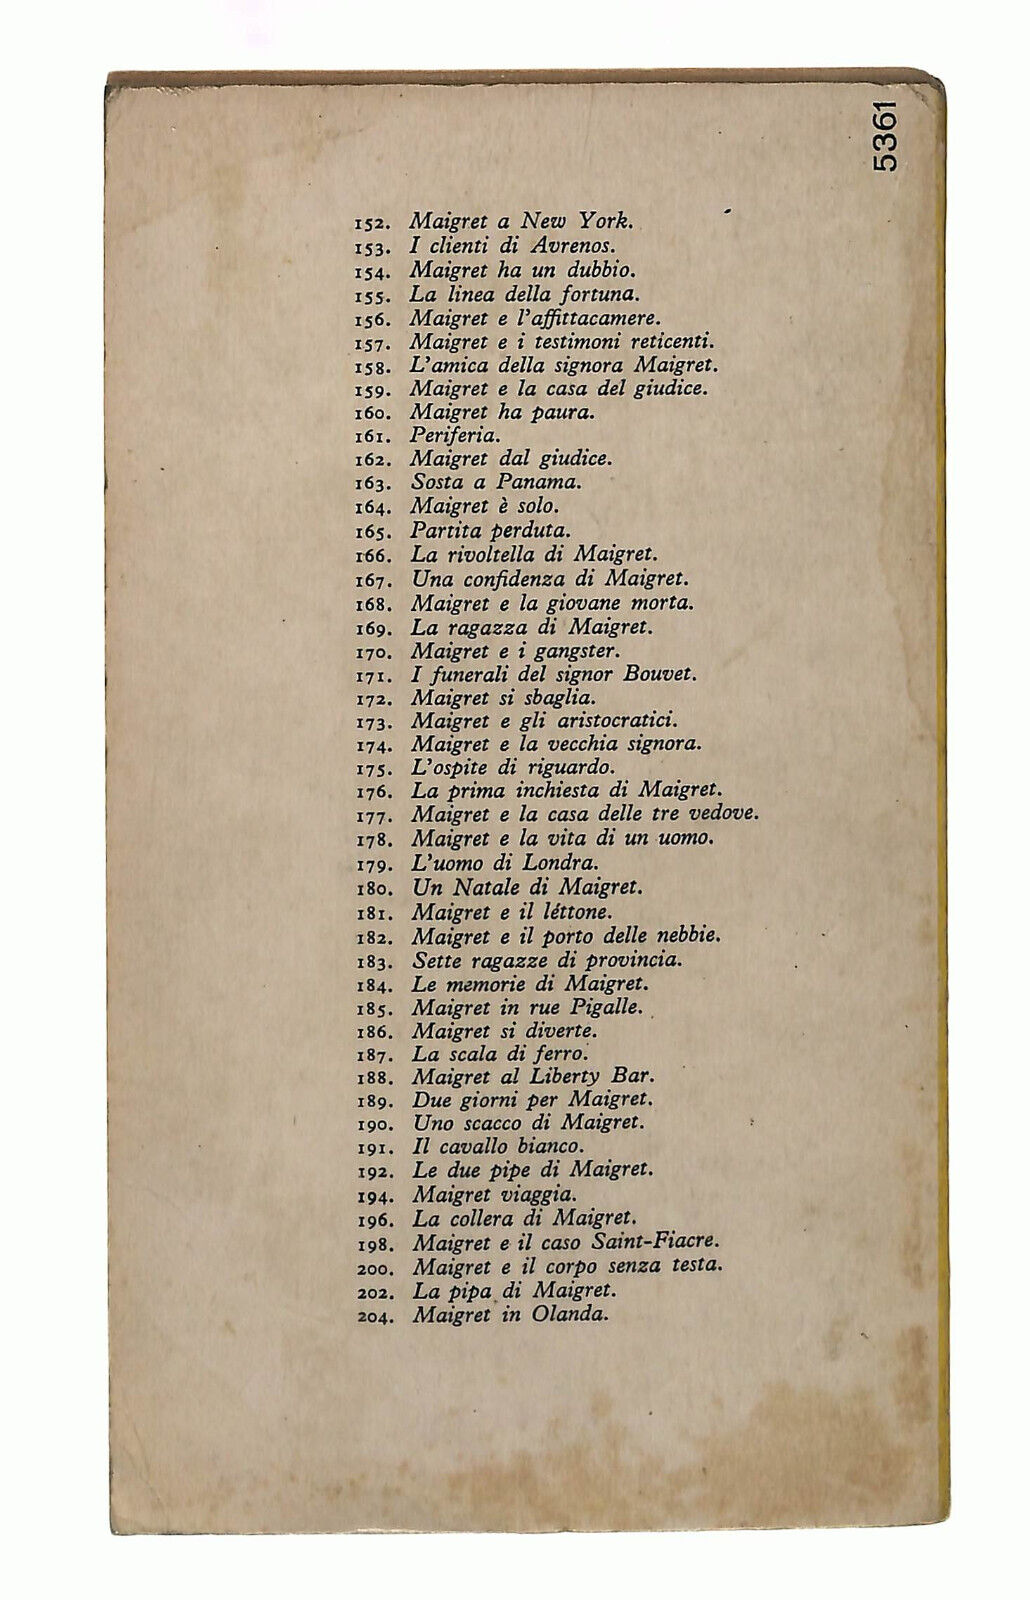 5361
152. Maigret a New York.
153. I clienti di Avrenos.
154. Maigret ha un dubbio.
155. La linea della fortuna.
156. Maigret e l'affittacamere.
157. Maigret e i testimoni reticenti.
158. L'amica della signora Maigret.
159. Maigret e la casa del giudice.
160. Maigret ha paura.
161. Periferia.
162. Maigret dal giudice.
163. Sosta a Panama.
164. Maigret è solo.
165. Partita perduta.
166. La rivoltella di Maigret.
167. Una confidenza di Maigret.
168. Maigret e la giovane morta.
169. La ragazza di Maigret.
170. Maigret e i gangster.
171. I funerali del signor Bouvet.
172. Maigret si sbaglia.
173. Maigret e gli aristocratici.
174. Maigret e la vecchia signora.
175. L'ospite di riguardo.
176. La prima inchiesta di Maigret.
177. Maigret e la casa delle tre vedove.
178. Maigret e la vita di un uomo.
179. L'uomo di Londra.
180. Un Natale di Maigret.
181. Maigret e il léttone.
182. Maigret e il porto delle nebbie.
183. Sette ragazze di provincia.
184. Le memorie di Maigret.
185. Maigret in rue Pigalle.
186. Maigret si diverte.
187. La scala di ferro.
188. Maigret al Liberty Bar.
189. Due giorni per Maigret.
190. Uno scacco di Maigret.
191. Il cavallo bianco.
192. Le due pipe di Maigret.
194. Maigret viaggia.
196. La collera di Maigret.
198. Maigret e il caso Saint-Fiacre.
200. Maigret e il corpo senza testa.
202. La pipa di Maigret.
204. Maigret in Olanda.